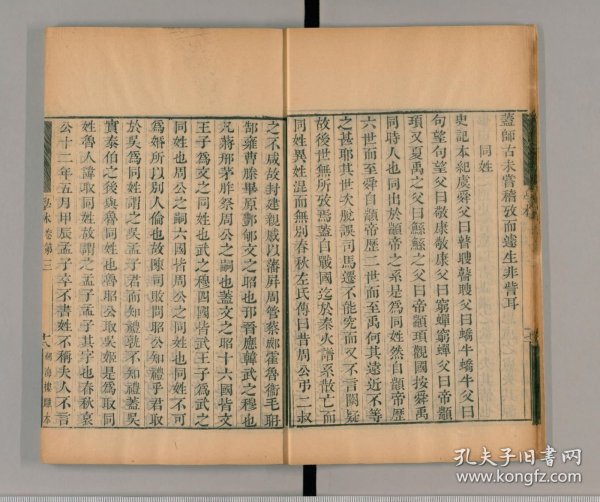 蓋師古未嘗稽攷而遽生非訾耳
同姓
史記本紀虞舜父曰瞽瞍瞽瞍父曰蟜牛蟜牛父曰
句望句望父曰敬康敬康父曰窮蟬窮蟬父曰帝顓
頊又夏禹之父曰鯀鯀之父曰帝顓頊觀國按舜禹
同時人也同出於顓帝之系是爲同姓然自顓帝歷
六世而至舜自顓帝歷二世而至禹何其遠近不等
之甚耶其世次脫誤司馬遷不能究而又不言闕疑
故後世無所攷焉蓋自戰國迄於秦火譜系散亡而
同姓異姓混而無別春秋左氏傳曰昔周公弔二叔
之不咸故封建親戚以藩屏周管蔡郕霍魯衞毛聃
郜雍曹滕畢原酆郇文之昭也邘晉應韓武之穆也
凡蔣邢茅胙祭周公之嗣也蓋文之昭十六國皆文
王子爲文之同姓也武之穆四國皆武王子爲武之
同姓也周公之嗣六國皆周公之同姓也同姓不可
爲婚所以別人倫也故陳司敗問昭公知禮乎君取
於吳爲同姓謂之吳孟子君而知禮孰不知禮蓋吳
實泰伯之後與魯同姓也魯昭公取吳姬是爲取同
姓魯人諱取同姓故謂之孟子孟子其字也春秋哀
公十二年五月甲辰孟子卒不書姓不稱夫人不言
學林卷第三
十八
湖海樓雕本
孔夫子旧书网